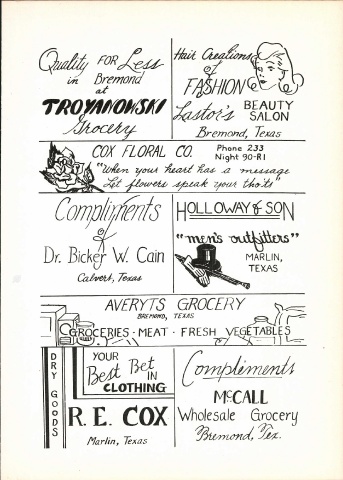 Quality FOR Less
in Bremond
at
TROYANOWSKI
Grocery
Hair Creations
of
FASHION
Lastor's BEAUTY
SALON
Bremond, Texas
COX FLORAL CO. Phone 233
Night 90-R1
"When your heart has a message
Let flowers speak your tho'ts"
Compliments
of
Dr. Bicker W. Cain
Calvert, Texas
HOLLOWAY & SON
"men's outfitters"
MARLIN,
TEXAS
AVERYTS GROCERY
BREMOND, TEXAS
GROCERIES · MEAT · FRESH VEGETABLES
DRY GOODS
YOUR
Best Bet
IN
CLOTHING
R. E. COX
Marlin, Texas
Compliments
McCALL
Wholesale Grocery
Bremond, Tex.